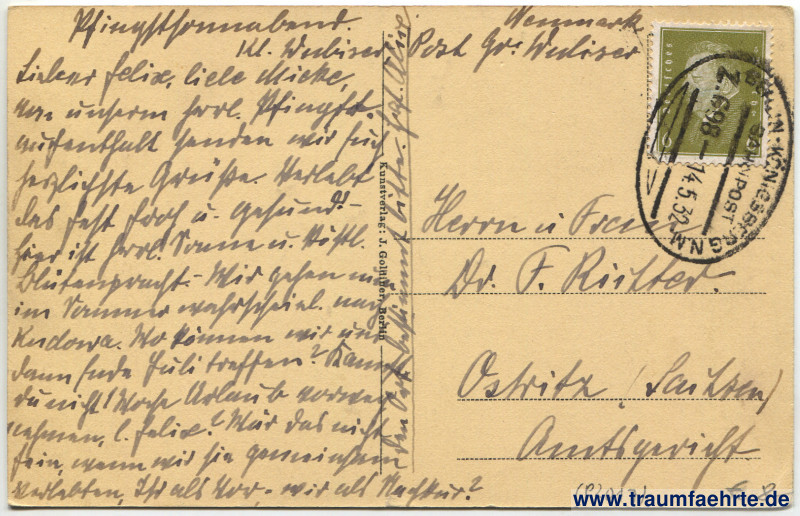 Pfingstsonnabend.
Kl. Wubiser Post Gr. Wubiser
Neumark
Lieber Felix, liebe Mieke,
von unserm herrl. Pfingst-
aufenthalt senden wir Euch
herzlichste Grüße. Verlebt
das Fest froh u. gesund!-
hier ist herrl. Sonne u. köstl.
Blütenpracht.- Wir gehen nun
im Sommer wahrscheinl. nach
Kudowa. Wo können wir uns
dann Ende Juli treffen? Kannst
du nicht 1 Woche Urlaub vorweg
nehmen, l. Felix? Wär das nicht
fein, wenn wir sie gemeinsam
verlebten, Ihr als Vor-, wir als Nachkur?
den Ort bestimmt bitte.
Kunstverlag: J. Goldiner, Berlin
Herrn u. Frau
Dr. F. Richter.
Ostritz (Sachsen)
Amtsgericht.
BERLIN-KÖNIGSBERG N.M.
BAHNPOST
Z.698
14.5.32
www.traumfaehrte.de